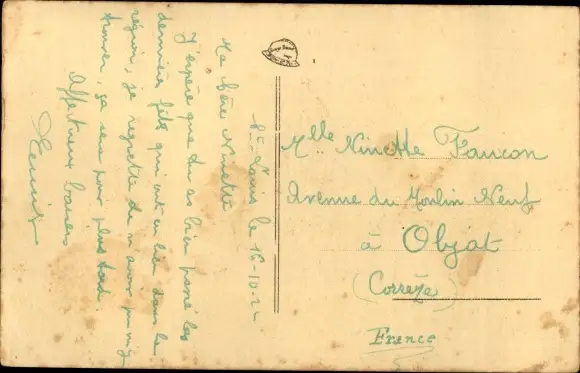 St Louis le 16-10-24
Ma chère Ninette
J'espère que tu as bien passé les
dernières fêtes qui ont eu lieu dans la
région, je regrette de n'avoir pu m'y
trouver, ça sera pour plus tard.
Affectueux baisers
Mlle Ninette Faucon
Avenue du Moulin Neuf
à Objat
(Corrèze)
France